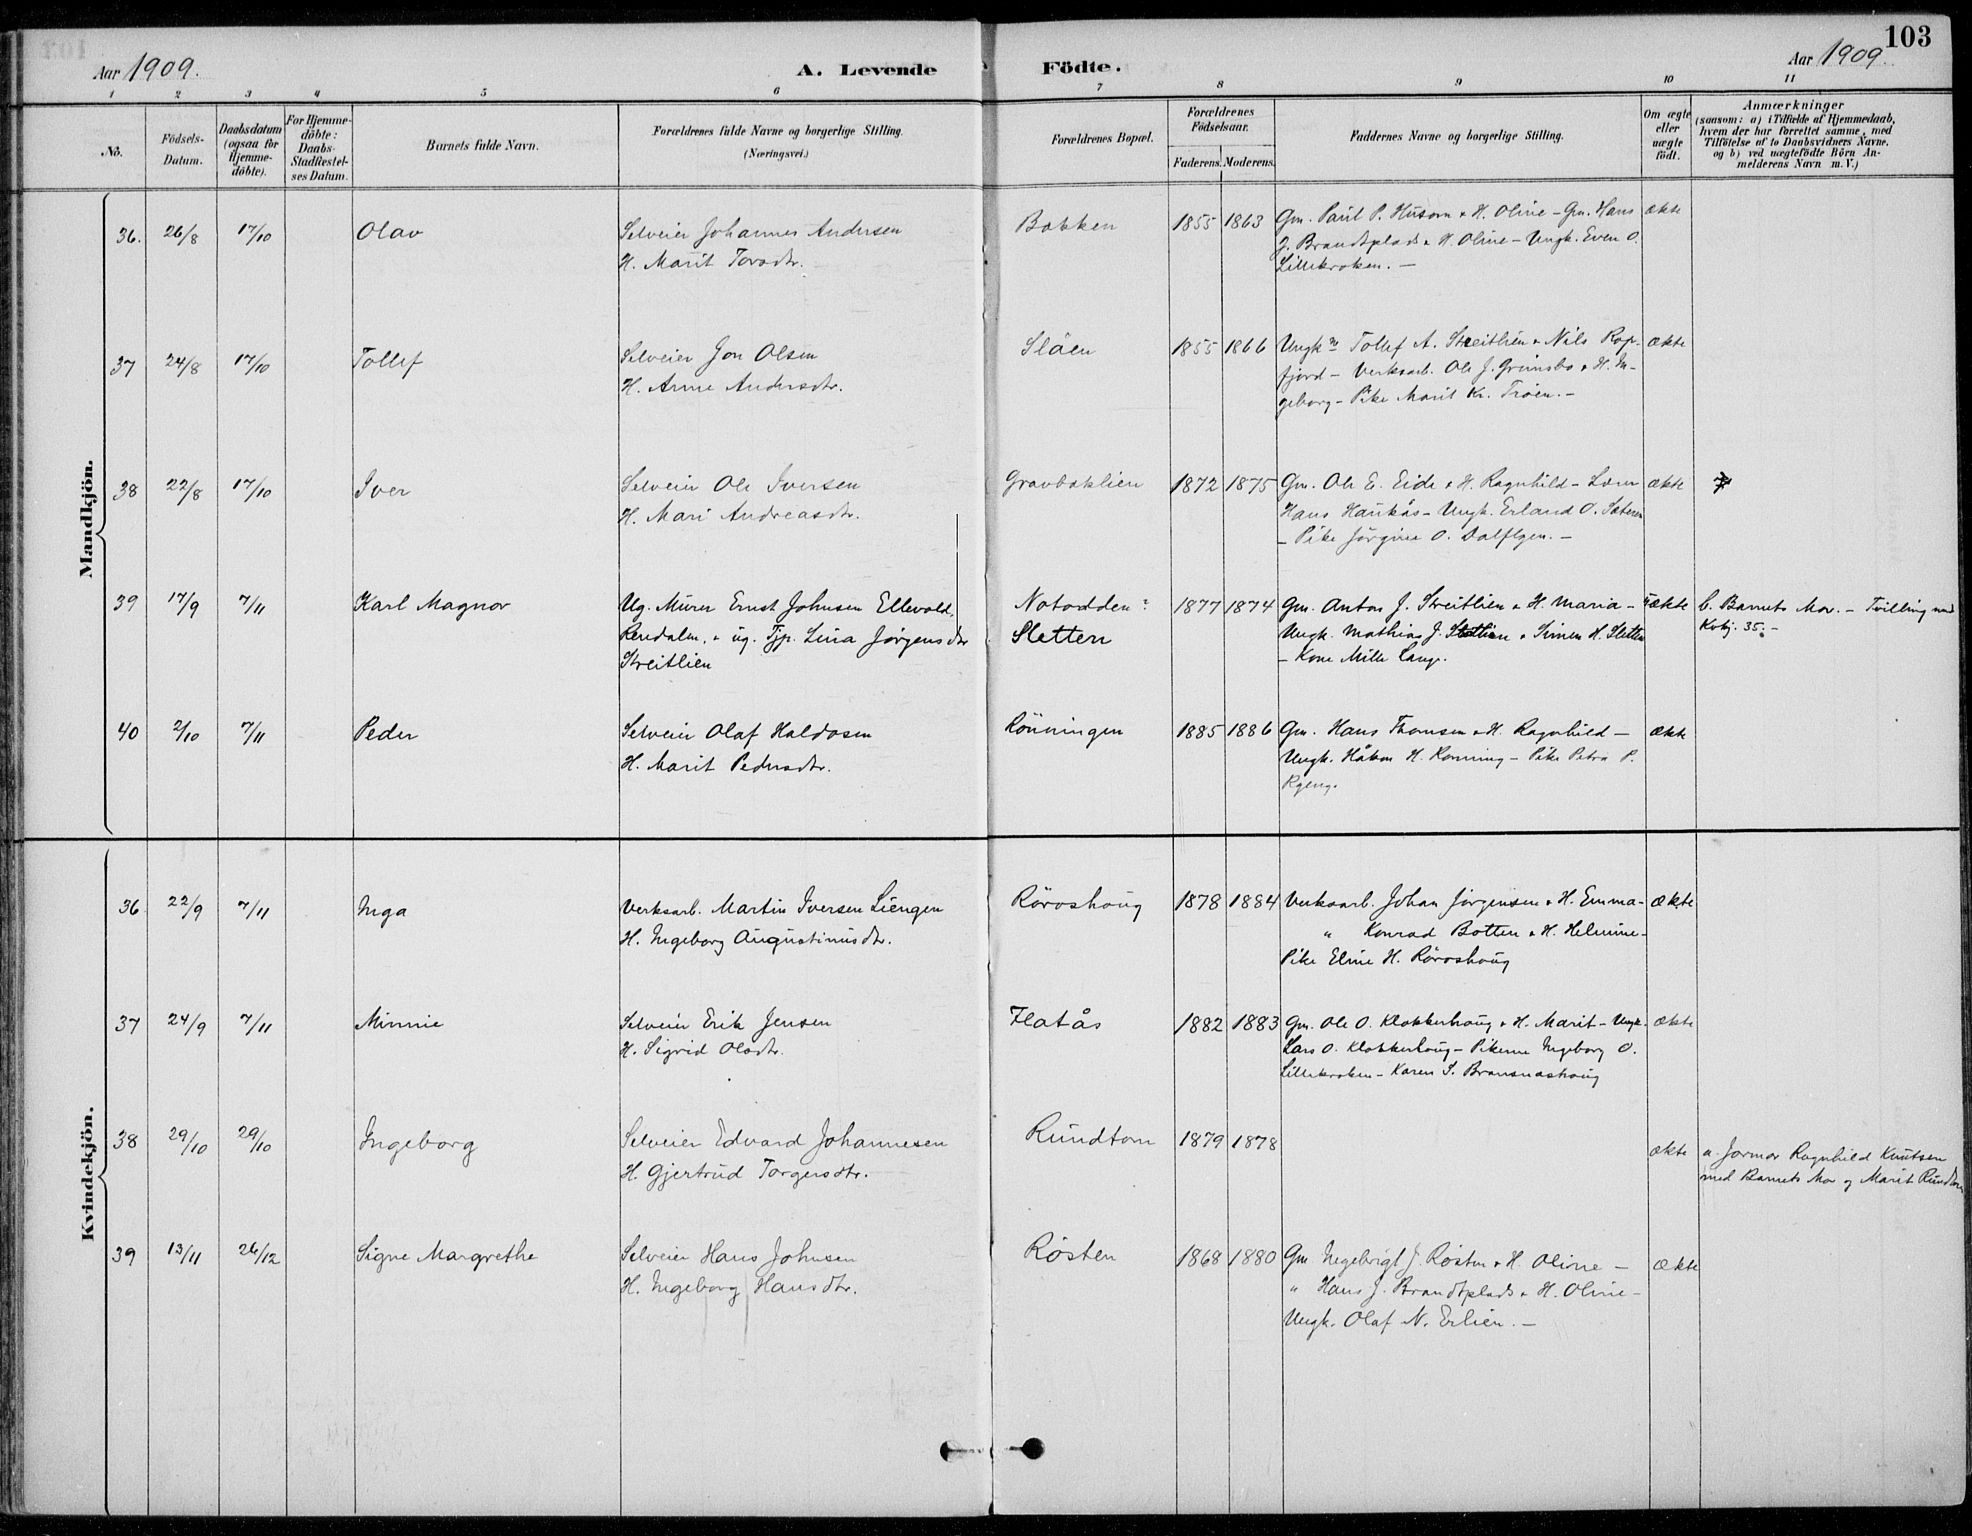 103
Aar 1909.
A. Levende Födte.
Aar 1909.
1 2 3 4 5 6 7 8 9 10 11
No.
Födsels-Datum.
Daabsdatum (ogsaa for Hjemme-döbte).
For Hjemme-döbte: Daabs-Stadfæstel-ses Datum.
Barnets fulde Navn.
Forældrenes fulde Navne og borgerlige Stilling.
(Næringsvei.)
Forældrenes Bopæl.
Forældrenes Födselsaar.
Faderens. Moderens.
Faddernes Navne og borgerlige Stilling.
Om ægte eller uægte födt.
Anmærkninger
(saasom: a) i Tilfælde af Hjemmedaab,
hvem der har forrettet samme, med
Tilföielse af to Daabsvidners Navne,
og b) ved uægtefödte Börn An-
melderens Navn m.V.)
Mandkjön.
36. 26/8 17/10 Olav Selveier Johannes Andersen Bakken 1855 1863 Gm. Paul P. Husom & H. Oline – Gm. Hans ækte
H. Marit Torsdtr. J. Brandtplads & H. Oline – Ungk. Even O.
Lillekroken. –
37 24/8 17/10 Tollef Selveier Jon Olsen Slåen 1855 1866 Ungk. Tollef A. Streitlien & Nils Rap- ækte
H. Anne Andersdtr. fjord – Verksarb. Ole J. Grimsbo & H. In-
geborg – Pike Marit Kr. Trøen. –
38 22/8 17/10 Iver Selveier Ole Iversen Gravbaklien 1872 1875 Gm. Ole E. Eide & H. Ragnhild – Lærer ækte
H. Mari Andreasdtr. Hans Haukås – Ungk. Erland O. Sæteren
– Pike Jörgine O. –
39 17/9 7/11 Karl Magnor Ug. Murer Ernst Johnsen Ellevold, Notodden? 1877 1874 Gm. Anton J. Streitlien & H. Maria – uækte b. Barnets Mor. – Tvilling med
Rendalen, & ug. Tjp. Lina Jørgensdtr Sletten Ungk. Mathias J. & Simen H. Sletten Kvkj. 35. –
Streitlien – Kone Mille Lange.
40 2/10 7/11 Peder Selveier Olaf Haldosen Rönningen 1885 1886 Gm. Hans Thomsen & H. Ragnhild – ækte
H. Marit Pedersdtr. Ungk. Håkon H. Rönning – Pike Petra P.
Rgeng.
Kvindekjön.
36 22/9 7/11 Inga Verksarb. Martin Iversen Liengen Röroshaug 1878 1884 Verksarb. Johan Jørgensen & H. Emma – ækte
H. Ingeborg Augustinusdtr. " Konrad Botten & H. Helmine –
Pike Eline H. Röroshaug
37 24/9 7/11 Minnie Selveier Erik Jensen Flatås 1882 1883 Gm. Ole O. Klokkerhaug & H. Marit – Ungk. ækte
H. Sigrid Olsdtr. Lars O. Klokkerhaug – Pikerne Ingeborg O.
Lillekroken – Karen S. Bransnashaug
38 29/10 29/10 Ingeborg Selveier Edvard Johannesen Rundtom 1879 1878 ækte a. Jormor Ragnhild Knutsen
H. Gjertrud Torgersdtr. med Barnets Mor og Marit Rundtom
39 13/11 26/12 Signe Margrethe Selveier Hans Johnsen Rösten 1868 1880 Gm Ingebrigt J. Røsten & H. Oline – ækte
H. Ingeborg Hansdtr. " Hans J. Brandtplads & H. Oline –
Ungk. Olaf N. Erlien. –